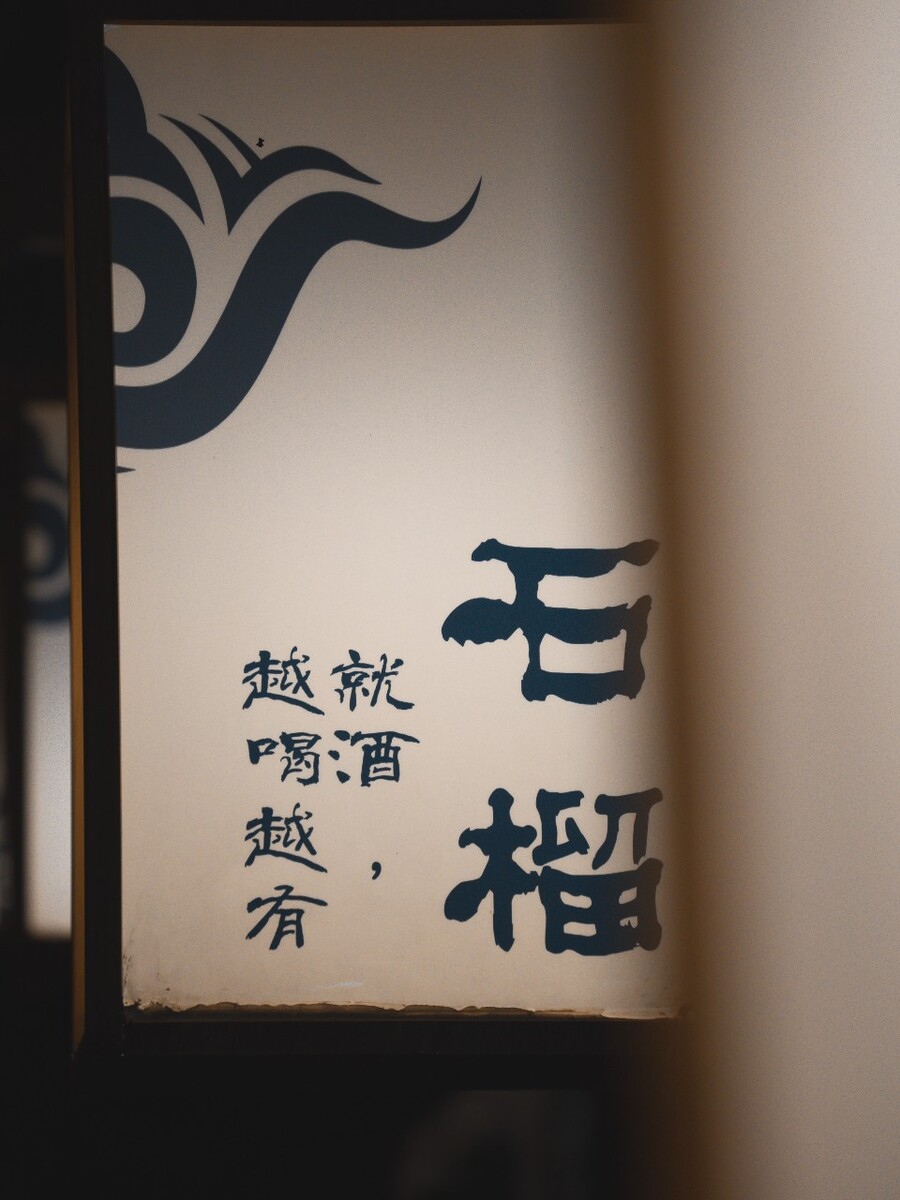 石榴
就酒，
越喝越有